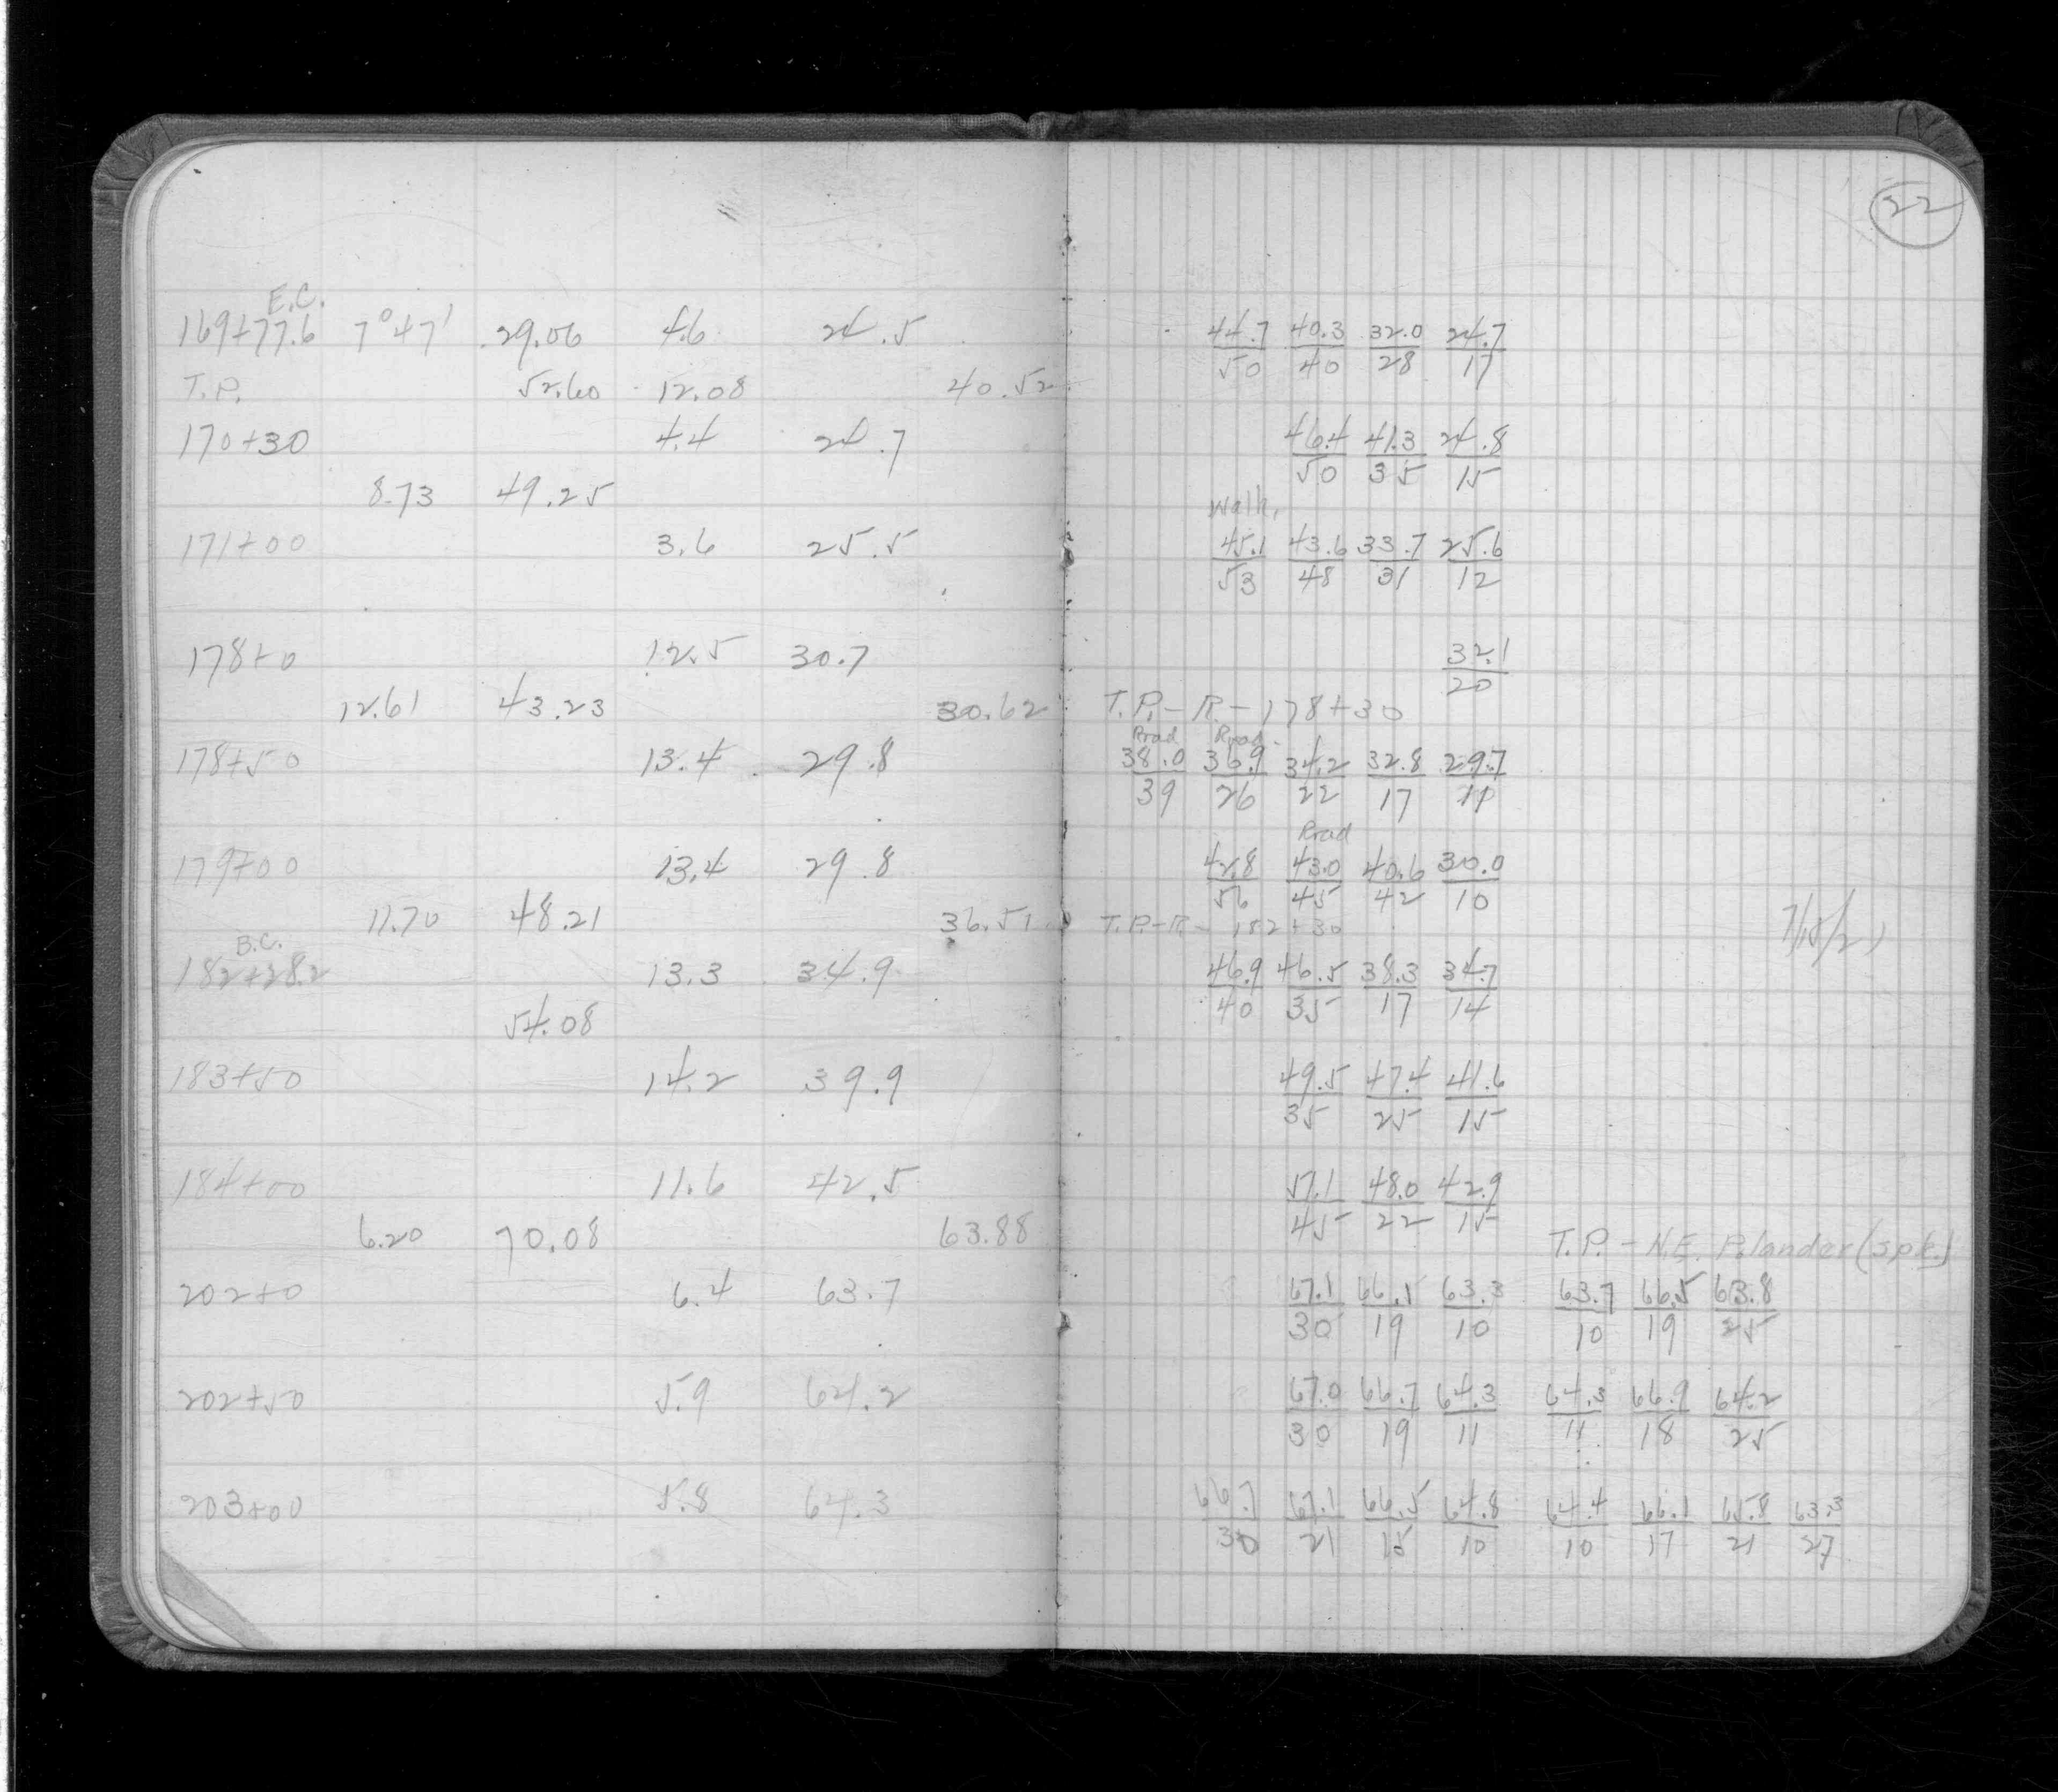 22
E.C.
169+77.6 7°47' 29.06 4.6 24.5 44.7/50 40.3/40 32.0/28 24.7/17
T.P. 52.60 12.08 40.52
170+30 4.4 24.7 46.4/50 41.3/35 24.8/15
8.73 49.25
Walk,
171+00 3.6 25.5 45.1/53 43.6/48 33.7/31 25.6/12
178+0 12.5 30.7 32.1/20
12.61 43.23 30.62 T.P.-R-178+30
Road Road
178+50 13.4 29.8 38.0/39 36.9/26 34.2/22 32.8/17 29.7/11
Road
179+00 13.4 29.8 42.8/56 43.0/45 40.6/42 30.0/10
11.70 48.21 36.51 T.P.-R-182+30
7/15/21
B.C.
182+28.2 13.3 34.9 46.9/40 46.5/35 38.3/17 34.7/14
54.08
183+50 14.2 39.9 49.5/35 47.4/25 41.6/15
184+00 11.6 42.5 57.1/45 48.0/22 42.9/15
6.20 70.08 63.88 T.P.-N.E. P.lander (spk.)
202+0 6.4 63.7 67.1/30 66.5/19 63.3/10 63.7/10 66.5/19 63.8/25
202+50 5.9 64.2 67.0/30 66.7/19 64.3/11 64.3/11 66.9/18 64.2/25
203+00 5.8 64.3 66.7/30 67.1/21 66.5/15 64.8/10 64.4/10 66.1/17 65.8/21 63.3/27